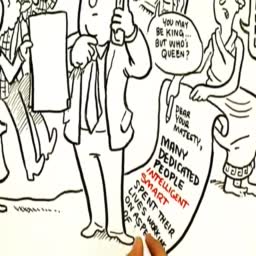 YOU MAY
BE KING...
BUT WHO'S
QUEEN?
DEAR
YOUR
MAJESTY,
MANY
DEDICATED
PEOPLE
INTELLIGENT
SMART
SPENT THEIR
LIVES WORKING
ON
OF